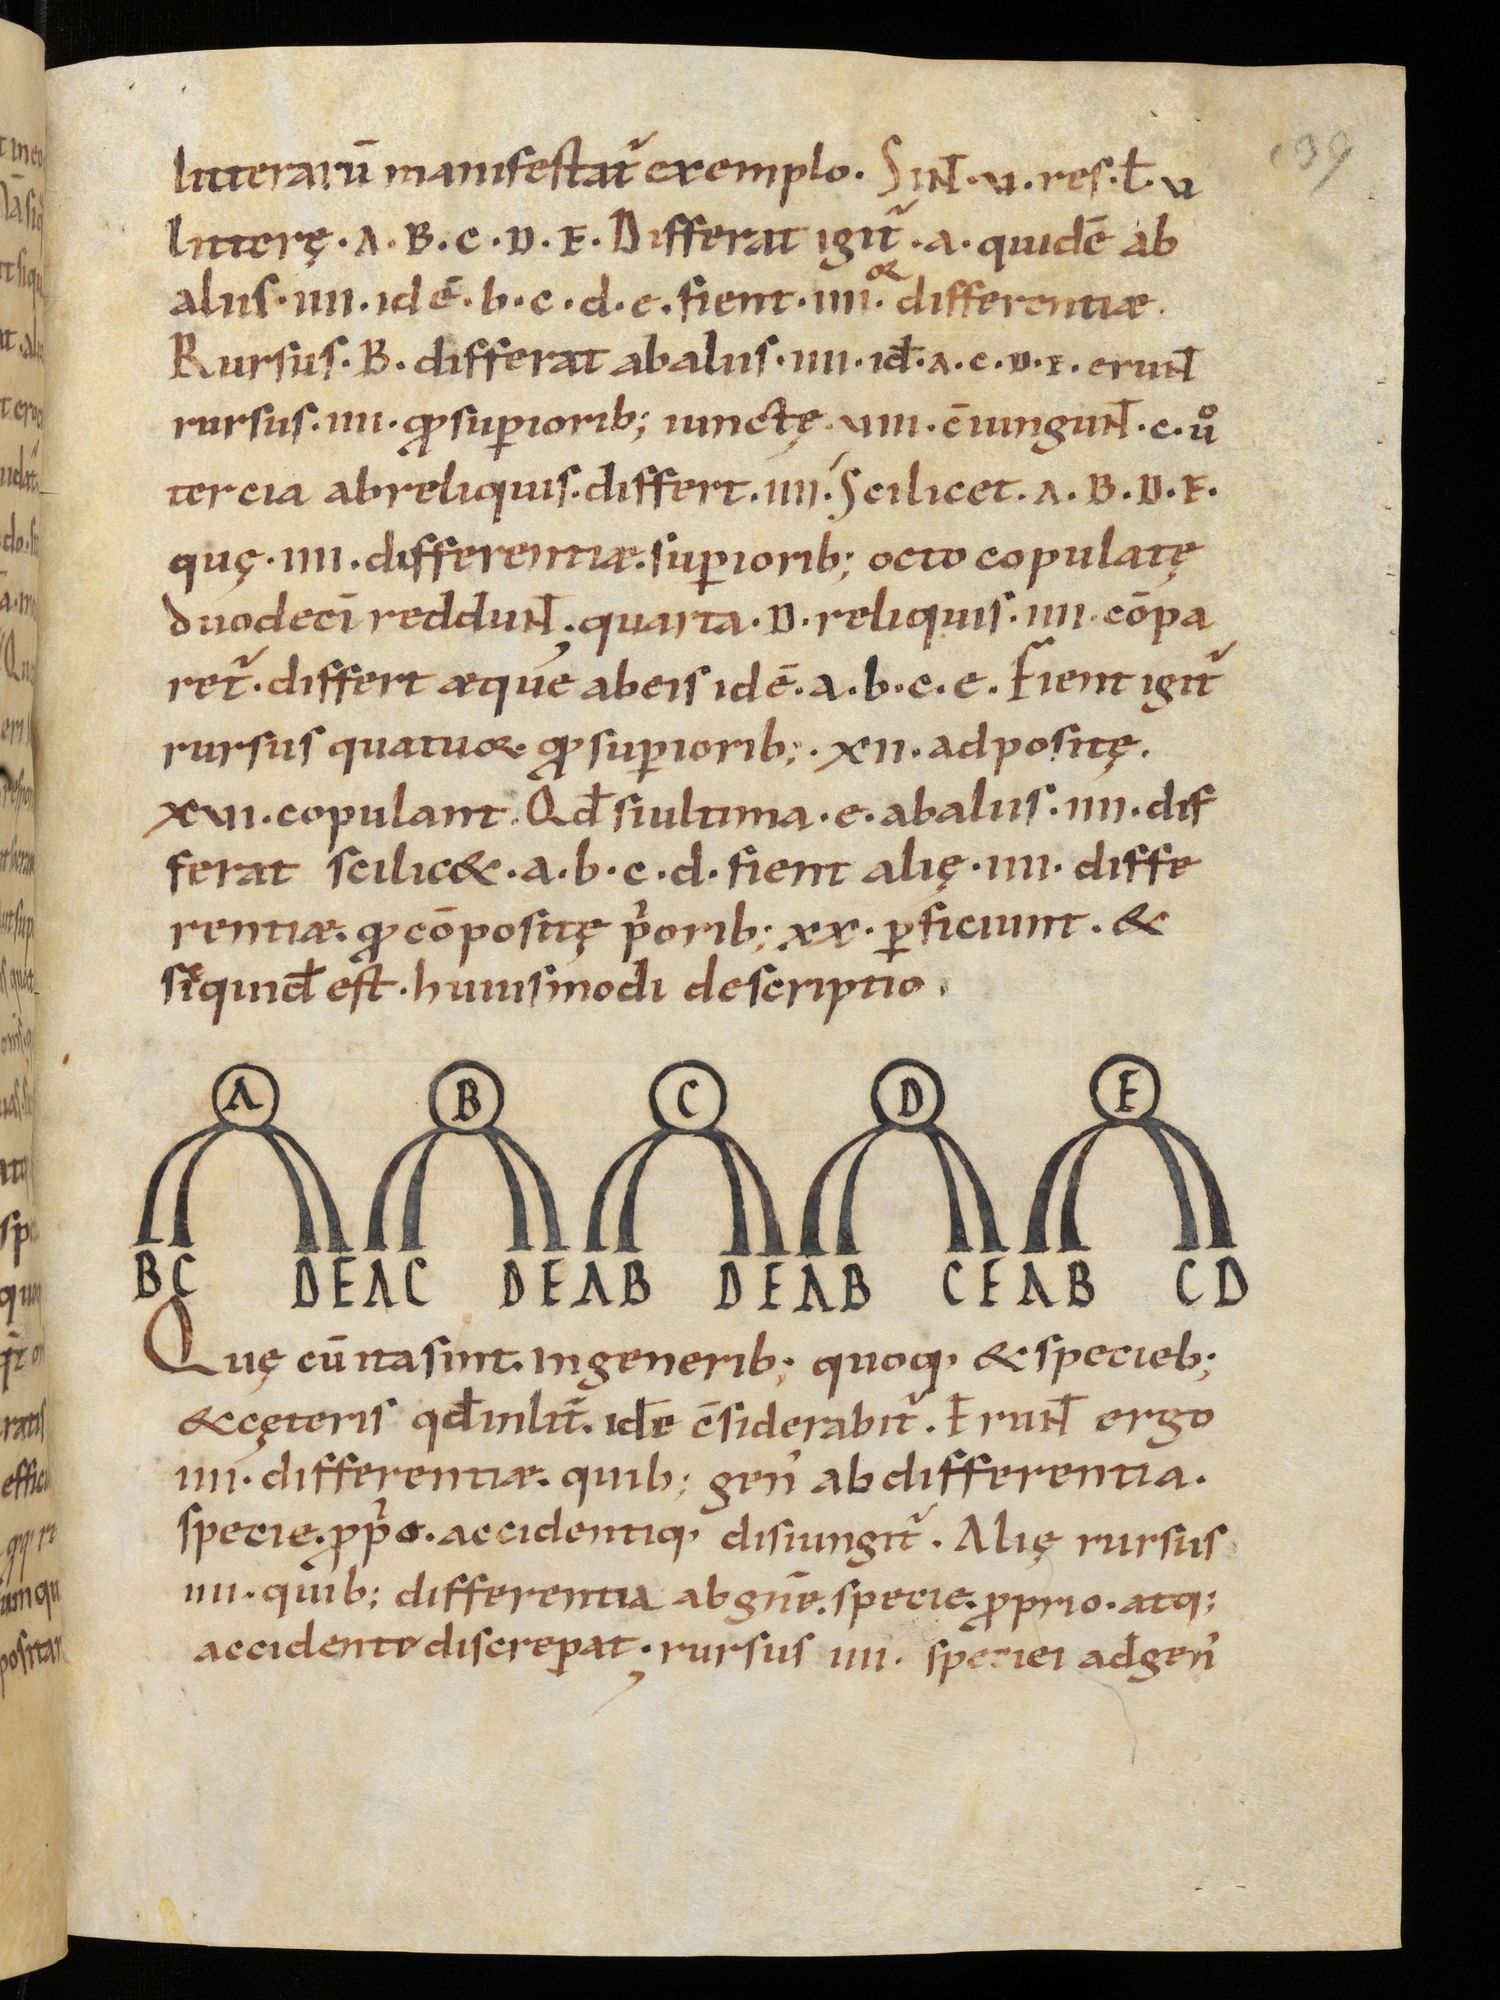 139
litterarū manifestat̃ exemplo. Sint̄·v·res·ł·v
litterę·A·B·C·D·E·Differat igit̃·a·quidē ab
aliis·iiii·idē·b·c·d·e·fient·iiii·or differentiæ.
Rursus·B·differat ab aliis·iiii·id̄·A·C·D·E·erunt̄
rursus·iiii·ꝙ suꝑiorib; iunctę·viii·c̄iungunt̄·c·ů
tercia ab reliquis·differt·iiii·Scilicet·A·B·D·E·
quę·iiii·differentiæ·suꝑiorib; octo copulatę
duodecī reddunt̄; quarta·D·reliquis·iiii·cōpa
ret̃·differt æque ab eis idē·a·b·c·e·Fient igit̃
rursus quatuor·ꝙ suꝑiorib;·xii·adpositę.
xvi·copulant·Qd̄ si ultima·e·ab aliis·iiii·dif
ferat scilic&·a·b·c·d·fient alię·iiii·diffe
rentiæ·ꝙ cōpositę p̓orib; xx·ꝑficiunt·&
si quid̄ est·huiusmodi descriptio.
A B C D E
B C D E A C D E A B D E A B C E A B C D
Quę cū ita sint·in generib; quoq, & specieb;
& cęteris qd̄ inlit̃·idē c̄siderabit̃·Erunt̄ ergo
iiii·differentiæ·quib; gen̓ ab differentia·
specie·ꝓp̓o·accidentiq, disiungit̃·Alię rursus
iiii·quib; differentia ab gn̄e·specie·ꝓprio·atq;
accidente discrepat; rursus iiii·speciei ad gen̓